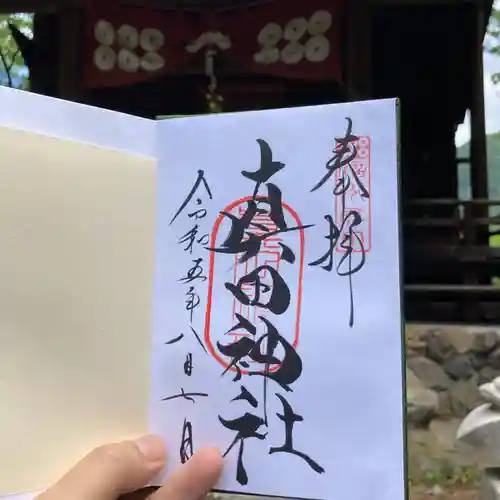 奉拝
真田神社
令和五年八月七日